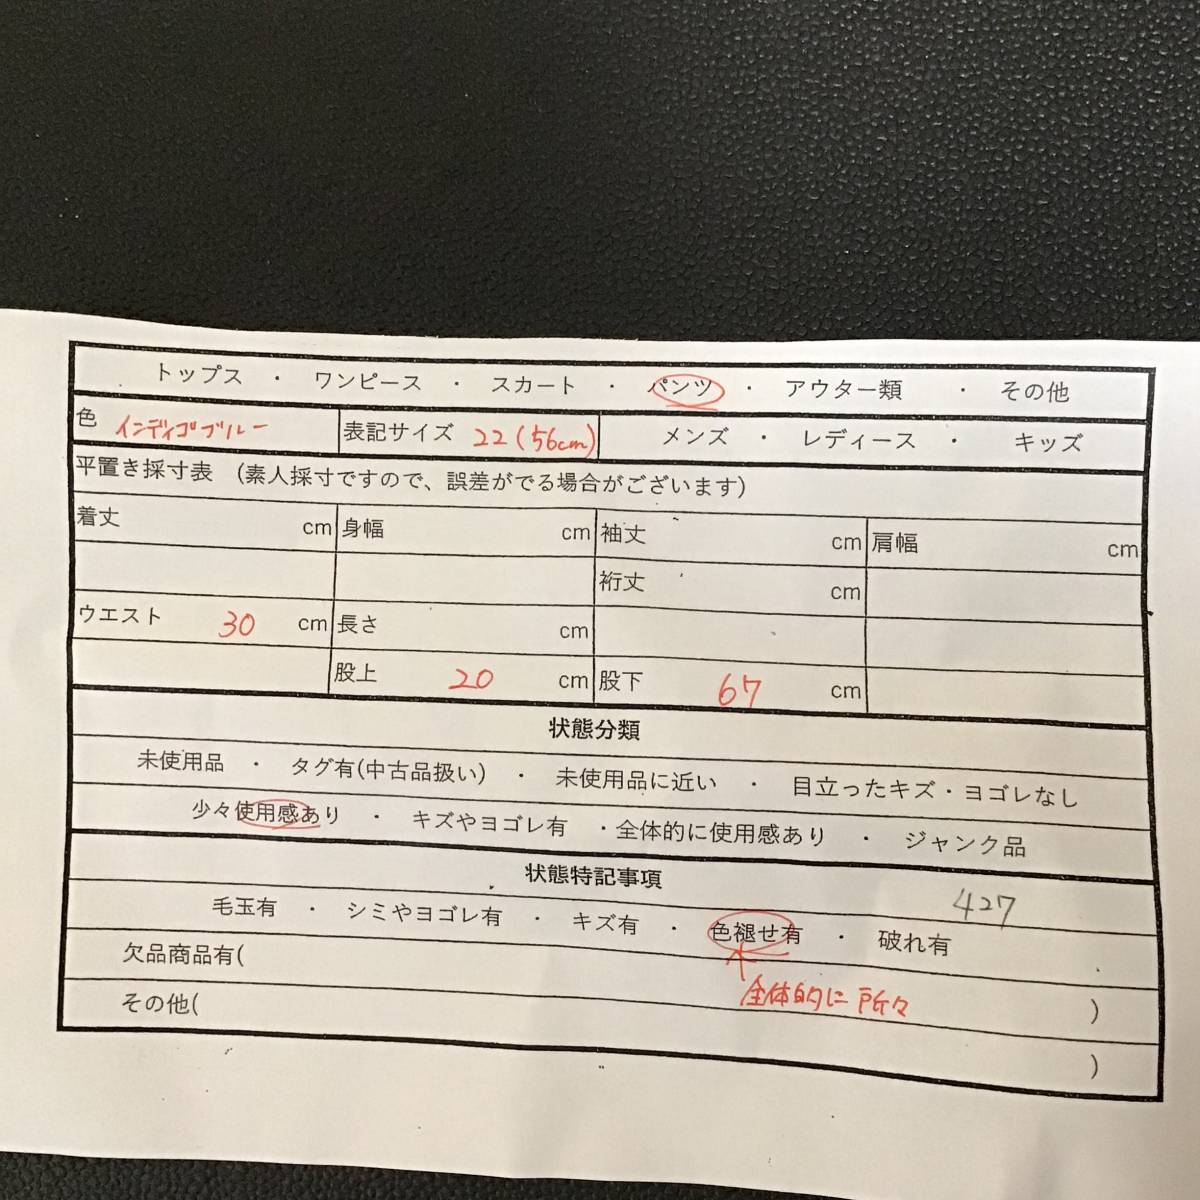 トップス ・ ワンピース ・ スカート ・ パンツ ・ アウター類 ・ その他
色 インディゴブルー 表記サイズ 22(56cm) メンズ ・ レディース ・ キッズ
平置き採寸表 (素人採寸ですので、誤差がでる場合がございます)
着丈 cm 身幅 cm 袖丈 cm 肩幅 cm
裄丈 cm
ウエスト 30 cm 長さ cm
股上 20 cm 股下 67 cm
状態分類
未使用品 ・ タグ有(中古品扱い) ・ 未使用品に近い ・ 目立ったキズ・ヨゴレなし
少々使用感あり ・ キズやヨゴレ有 ・全体的に使用感あり ・ ジャンク品
状態特記事項
427
毛玉有 ・ シミやヨゴレ有 ・ キズ有 ・ 色褪せ有 ・ 破れ有
欠品商品有( )
全体的に所々
その他( )